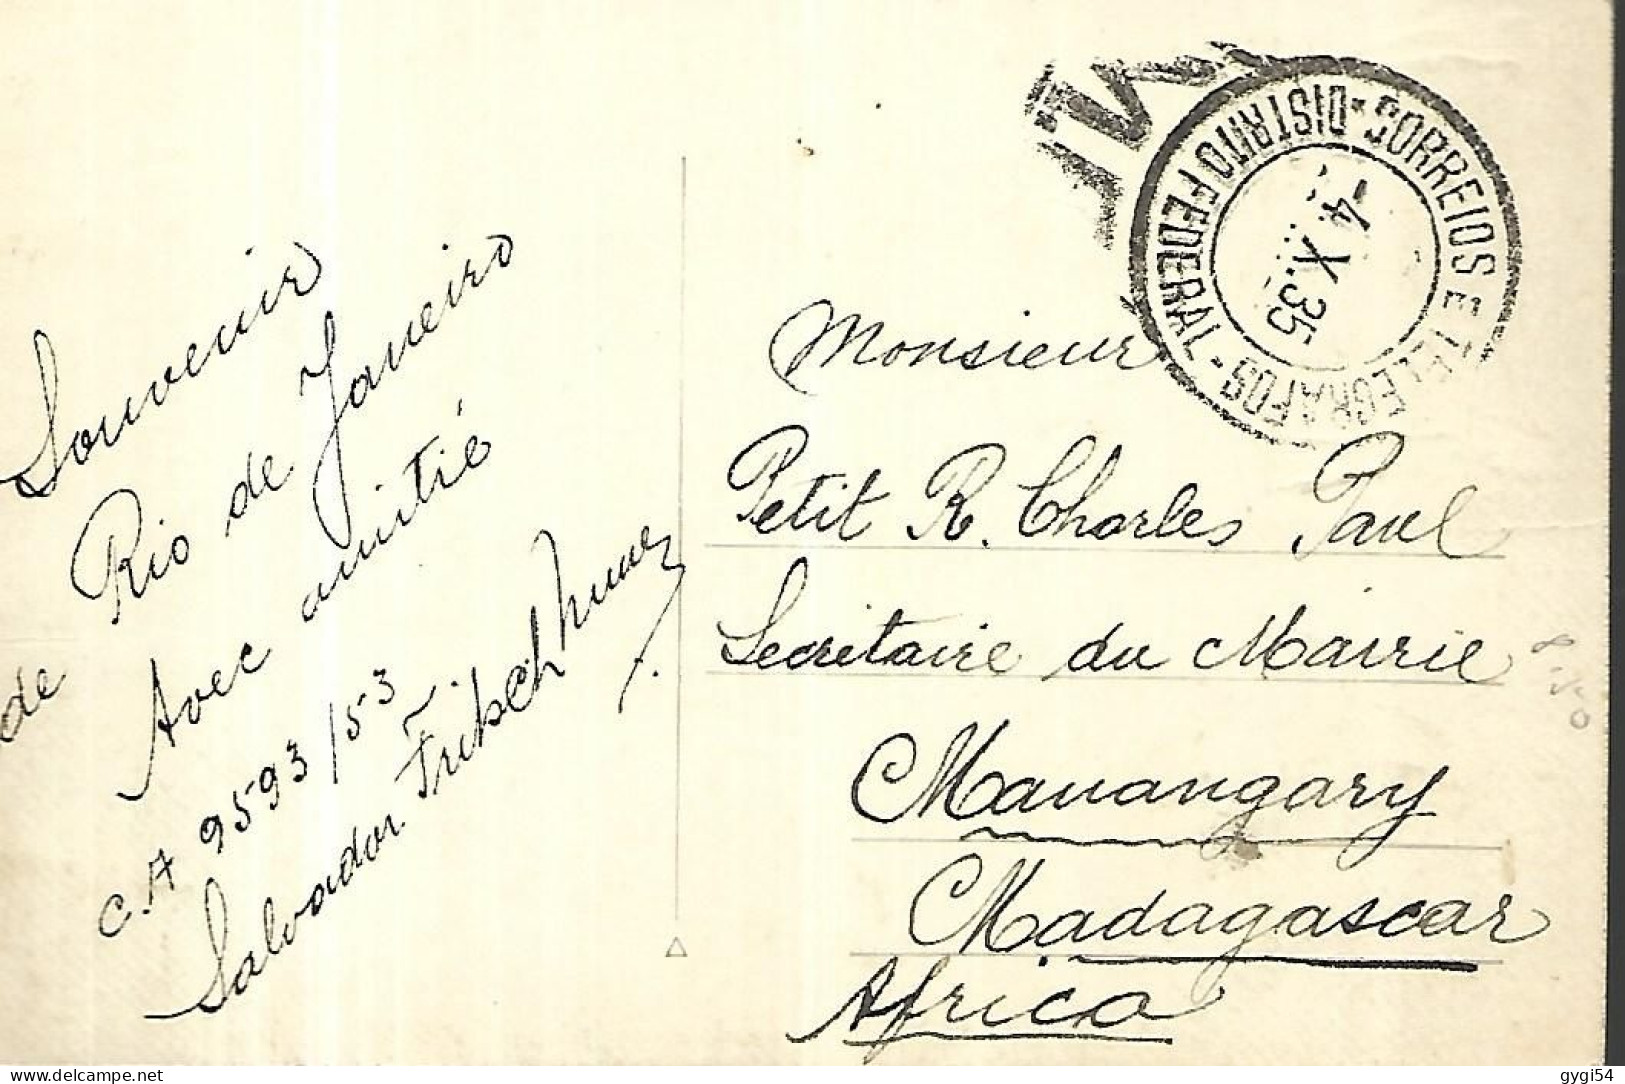 Souvenir
de Rio de Janeiro
Avec amitié
C.A 9593/53
Salvador
CORREIOS E TELEGRAFOS - DISTRITO FEDERAL -
-4 X.35
Monsieur
Petit R. Charles Paul
Secrétaire du Mairie
Manangary
Madagascar
Africa
delcampe.net
gygi54